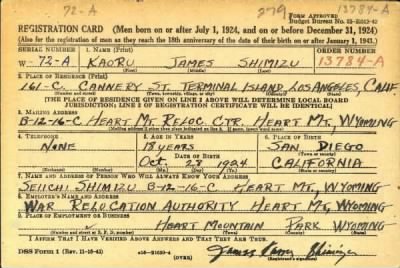 72-A 279 13784-A
Form Approved
Budget Bureau No. 33-R012-42
REGISTRATION CARD—(Men born on or after July 1, 1924, and on or before December 31, 1924)
(Also for the registration of men as they reach the 18th anniversary of the date of their birth on or after January 1, 1943.)
SERIAL NUMBER 1. NAME (Print) ORDER NUMBER
W-72-A KAORU JAMES SHIMIZU 13784-A
(First) (Middle) (Last)
2. PLACE OF RESIDENCE (Print)
161-C. CANNERY ST. TERMINAL ISLAND, LOS ANGELES, CALIF.
(Number and street) (Town, township, village, or city) (County) (State)
[THE PLACE OF RESIDENCE GIVEN ON LINE 2 ABOVE WILL DETERMINE LOCAL BOARD
JURISDICTION; LINE 2 OF REGISTRATION CERTIFICATE WILL BE IDENTICAL]
3. MAILING ADDRESS
B-12-16-C HEART MT. RELOC. CTR. HEART MT., WYOMING
(Mailing address if other than place indicated on line 2. If same, insert word same)
4. TELEPHONE 5. AGE IN YEARS 6. PLACE OF BIRTH
NONE 18 YEARS SAN DIEGO
DATE OF BIRTH (Town or county)
OCT. 28 1924 CALIFORNIA
(Exchange) (Number) (Mo.) (Day) (Yr.) (State or country)
7. NAME AND ADDRESS OF PERSON WHO WILL ALWAYS KNOW YOUR ADDRESS
SEIICHI SHIMIZU B-12-16-C HEART MT., WYOMING
8. EMPLOYER'S NAME AND ADDRESS
WAR RELOCATION AUTHORITY HEART MT, WYOMING
9. PLACE OF EMPLOYMENT OR BUSINESS
HEART MOUNTAIN PARK WYOMING
(Number and street or R. F. D. number) (Town) (County) (State)
I AFFIRM THAT I HAVE VERIFIED ABOVE ANSWERS AND THAT THEY ARE TRUE.
DSS Form 1 (Rev. 11-16-42) James Kaoru Shimizu